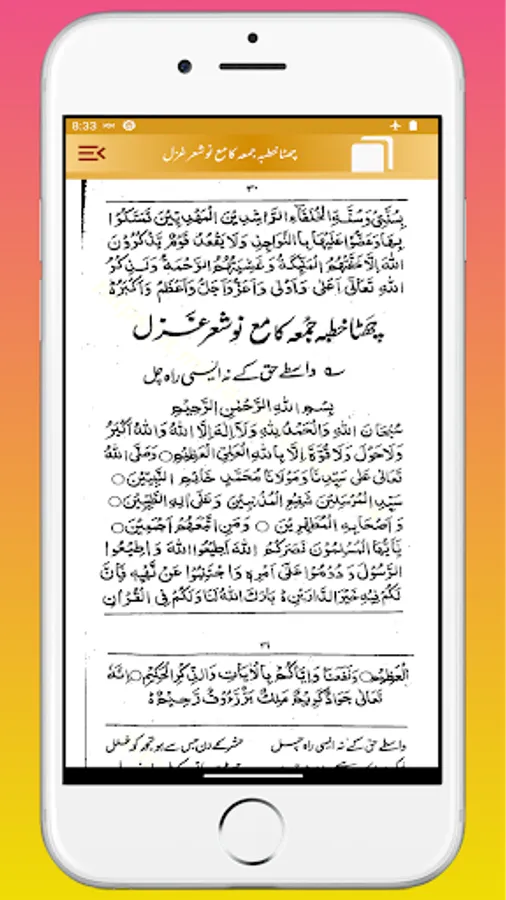 8:33
چھٹا خطبہ جمعہ کا مع نو شعر غزل
۳۰
بِسُنَّتِیْ وَسُنَّۃِ الْخُلَفَآءِ الرَّاشِدِیْنَ الْمَهْدِیِّیْنَ تَمَسَّكُوْا
بِهَا وَعَضُّوْا عَلَیْهَا بِالنَّوَاجِذِ وَلَا یَقْعُدُ قَوْمٌ یَّذْكُرُوْنَ
اللهَ اِلَّا حَفَّتْهُمُ الْمَلٰٓئِكَةُ وَغَشِیَتْهُمُ الرَّحْمَةُ وَلَذِكْرُ
اللهِ تَعَالٰی اَعْلٰی وَاَوْلٰی وَاَعَزُّ وَاَجَلُّ وَاَعْظَمُ وَاَكْبَرُ
چھٹا خطبہ جمعہ کا مع نو شعر غزل
واسطے حق کے نہ ایسی راہ چل
بِسْمِ اللهِ الرَّحْمٰنِ الرَّحِیْمِ
سُبْحَانَ اللهِ وَالْحَمْدُ لِلّٰهِ وَلَآ اِلٰهَ اِلَّا اللهُ وَاللهُ اَكْبَرُ
وَلَا حَوْلَ وَلَا قُوَّةَ اِلَّا بِاللهِ الْعَلِیِّ الْعَظِیْمِ ○ وَصَلَّی اللهُ
تَعَالٰی عَلٰی سَیِّدِنَا وَمَوْلَانَا مُحَمَّدٍ خَاتَمِ النَّبِیِّیْنَ ○
سَیِّدِ الْمُرْسَلِیْنَ شَفِیْعِ الْمُذْنِبِیْنَ وَعَلٰی اٰلِهِ الطَّیِّبِیْنَ ○
وَاَصْحَابِهِ الْمُطَهَّرِیْنَ ○ وَمَنِ اتَّبَعَهُمْ اَجْمَعِیْنَ ○
یَآ اَیُّهَا الْمُسْلِمُوْنَ نَصَرَكُمُ اللهُ اَطِیْعُوا اللهَ وَاَطِیْعُوا
الرَّسُوْلَ وَدُوْمُوْا عَلٰی اَمْرِهٖ وَاجْتَنِبُوْا عَنْ نَّهْیِهٖ فَاِنَّ
لَكُمْ فِیْهِ خَیْرَ الدَّارَیْنِ ○ بَارَكَ اللهُ لَنَا وَلَكُمْ فِی الْقُرْاٰنِ
۳۱
الْعَظِیْمِ ○ وَنَفَعَنَا وَاِیَّاكُمْ بِالْاٰیَاتِ وَالذِّكْرِ الْحَكِیْمِ ○ اِنَّهٗ
تَعَالٰی جَوَادٌ كَرِیْمٌ مَّلِكٌ بَرٌّ رَّءُوْفٌ رَّحِیْمٌ ○
واسطے حق کے نہ ایسی راہ چل حشر کے دن جس سے ہو تجھ کو خلل